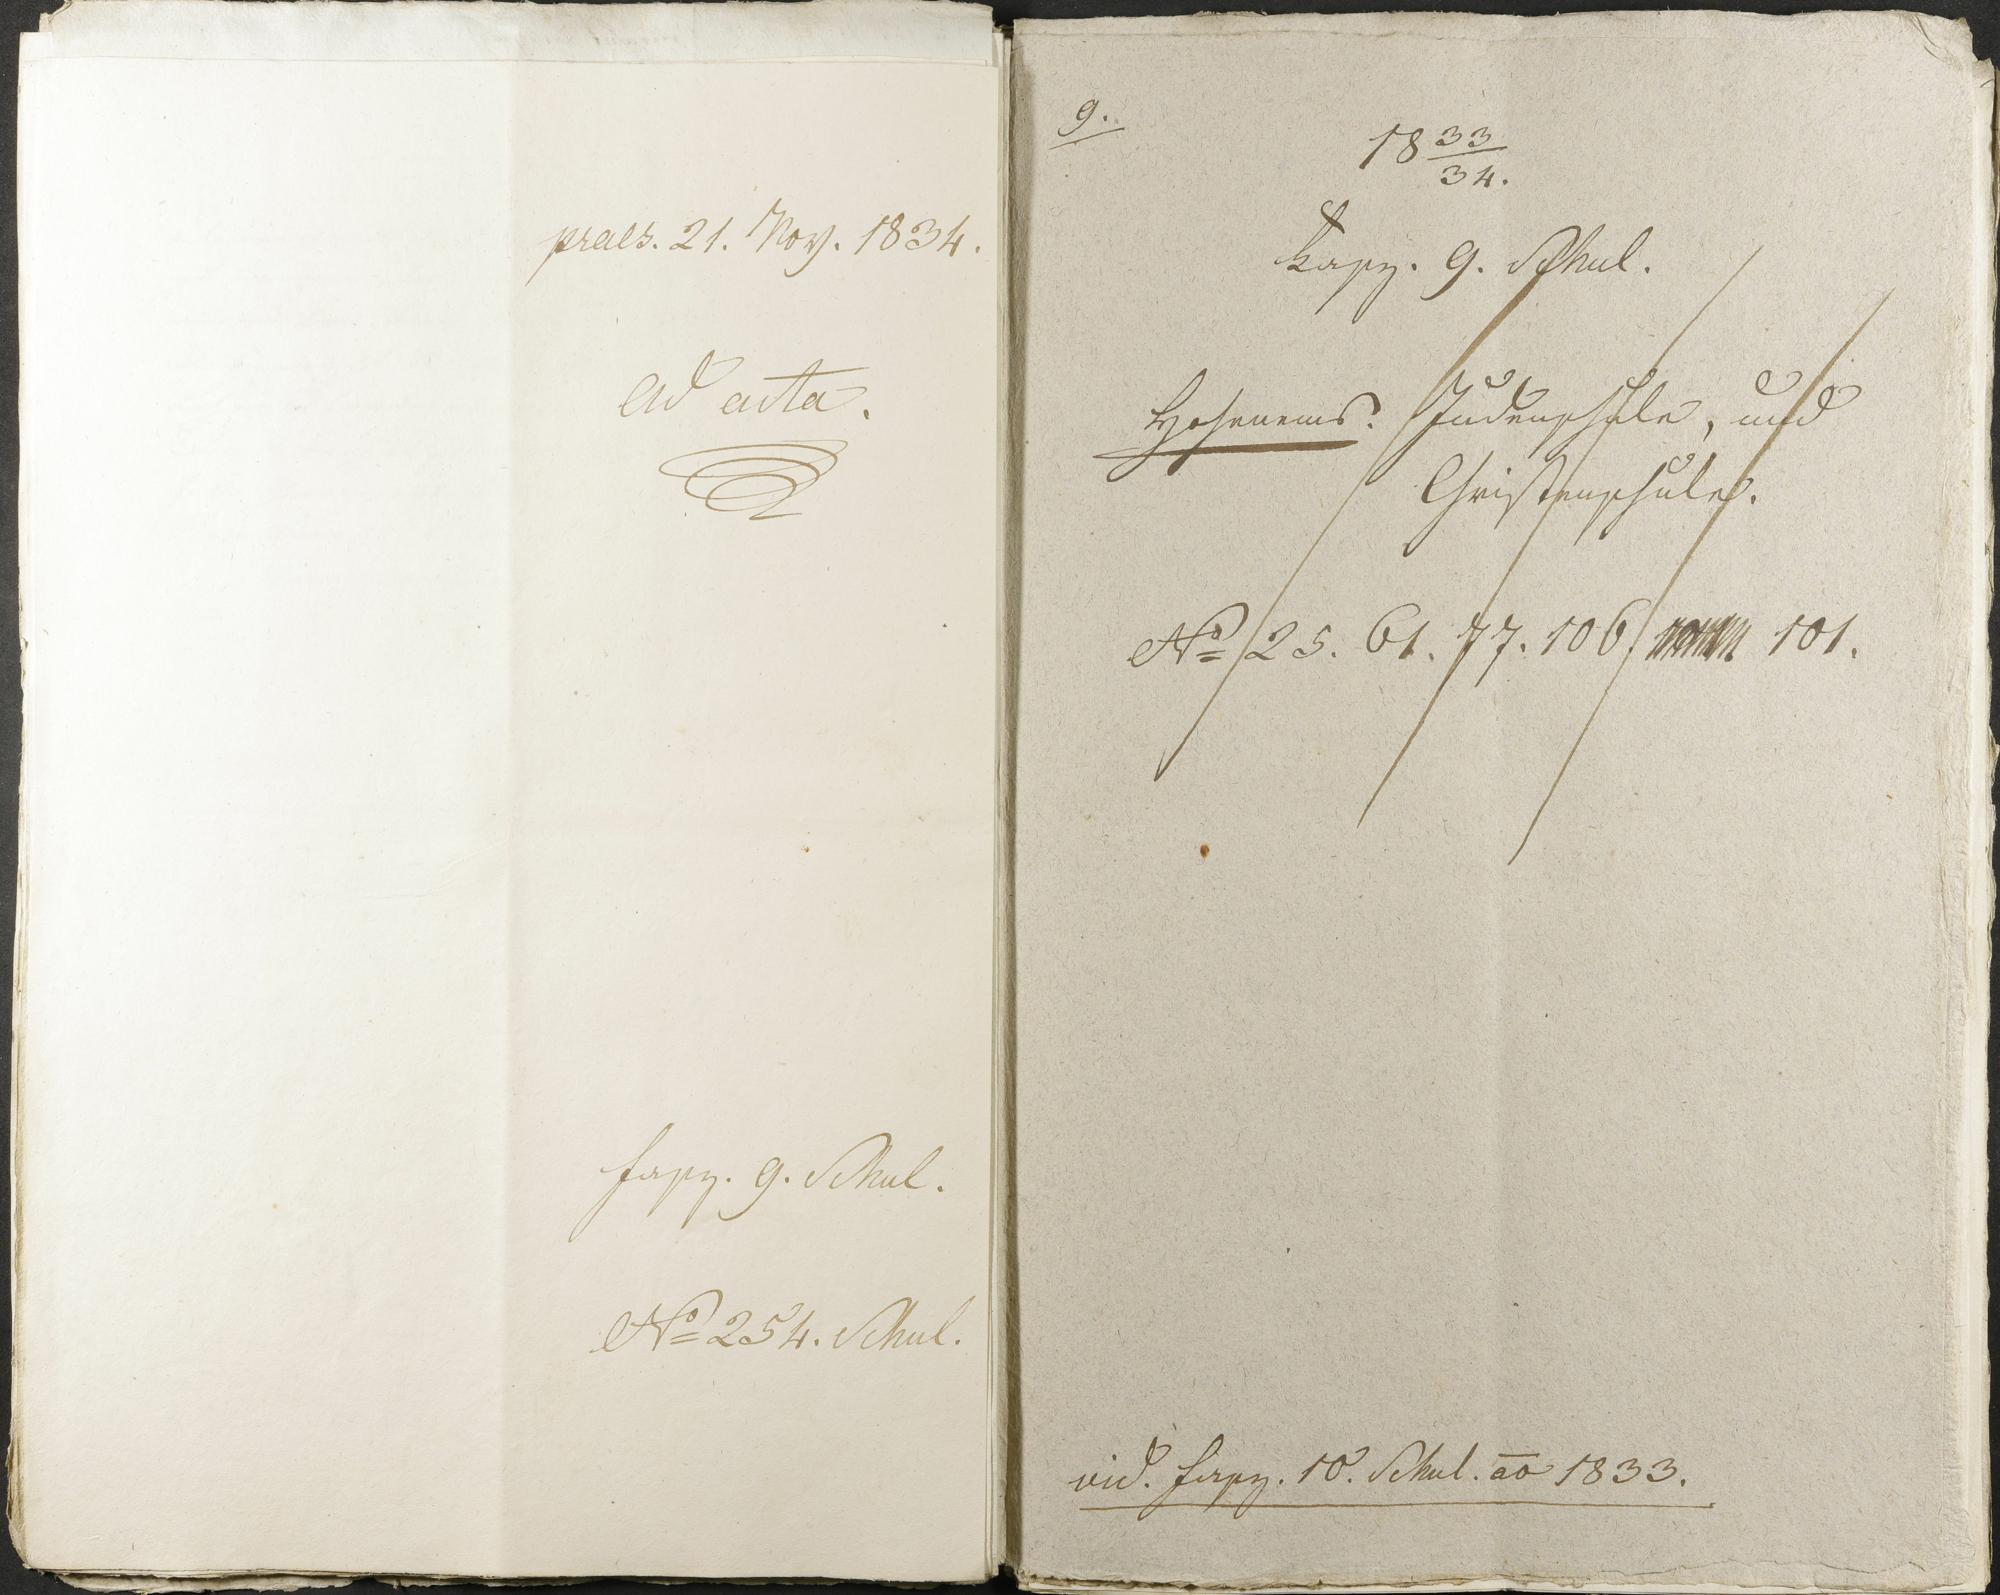 praes. 21. Nov. 1834.
ad acta.
fasz. 9. Schul.
No 254. Schul.
9.
18 33/34.
Fasz. 9. Schul.
Hohenems. Judenschule, und
Christenschule.
No 25. 61. 77. 106. 101.
vid. fasz. 10. Schul. ao 1833.